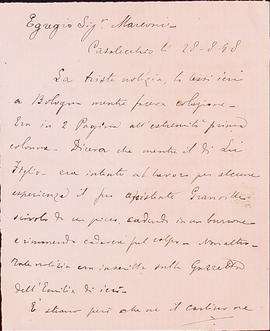 Egregio Sig.r Marconi
Casalecchio li 28-8-98
La triste notizia, la lessi ieri
a Bologna mentre facevo colazione.
Era in 2 Pagina all'estremità prima
colonna. Diceva che mentre il di Lei
figlio era intento al lavoro per alcune
esperienze il suo assistente
scivolò da un picco, cadendo in un burrone
e rimanendo cadavere sul colpo. Non altro
Tale notizia era inscritta sulla Gazzetta
dell'Emilia di ieri.
È strano però che nè il Carlino ne